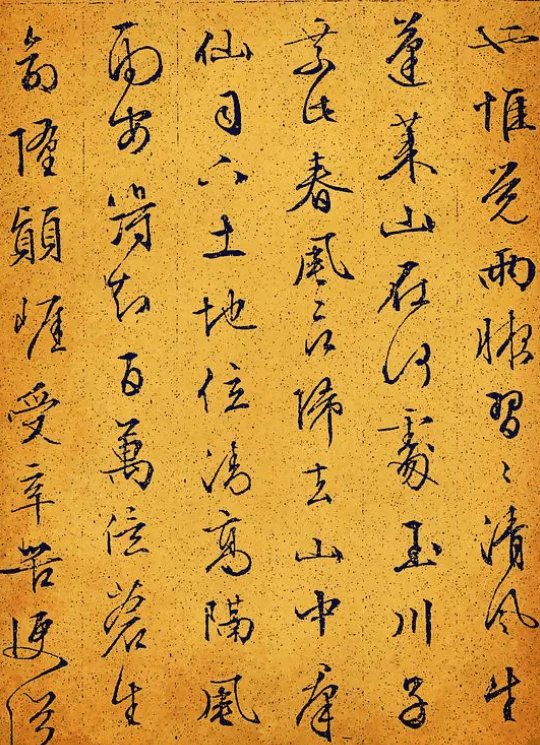 也惟覺兩腋習〻清風生
蓬萊山在何處玉川子
乘此春風欲歸去山中羣
仙司下土地位清高隔風
雨安得知百萬億蒼生
命墮顛崖受辛苦便從